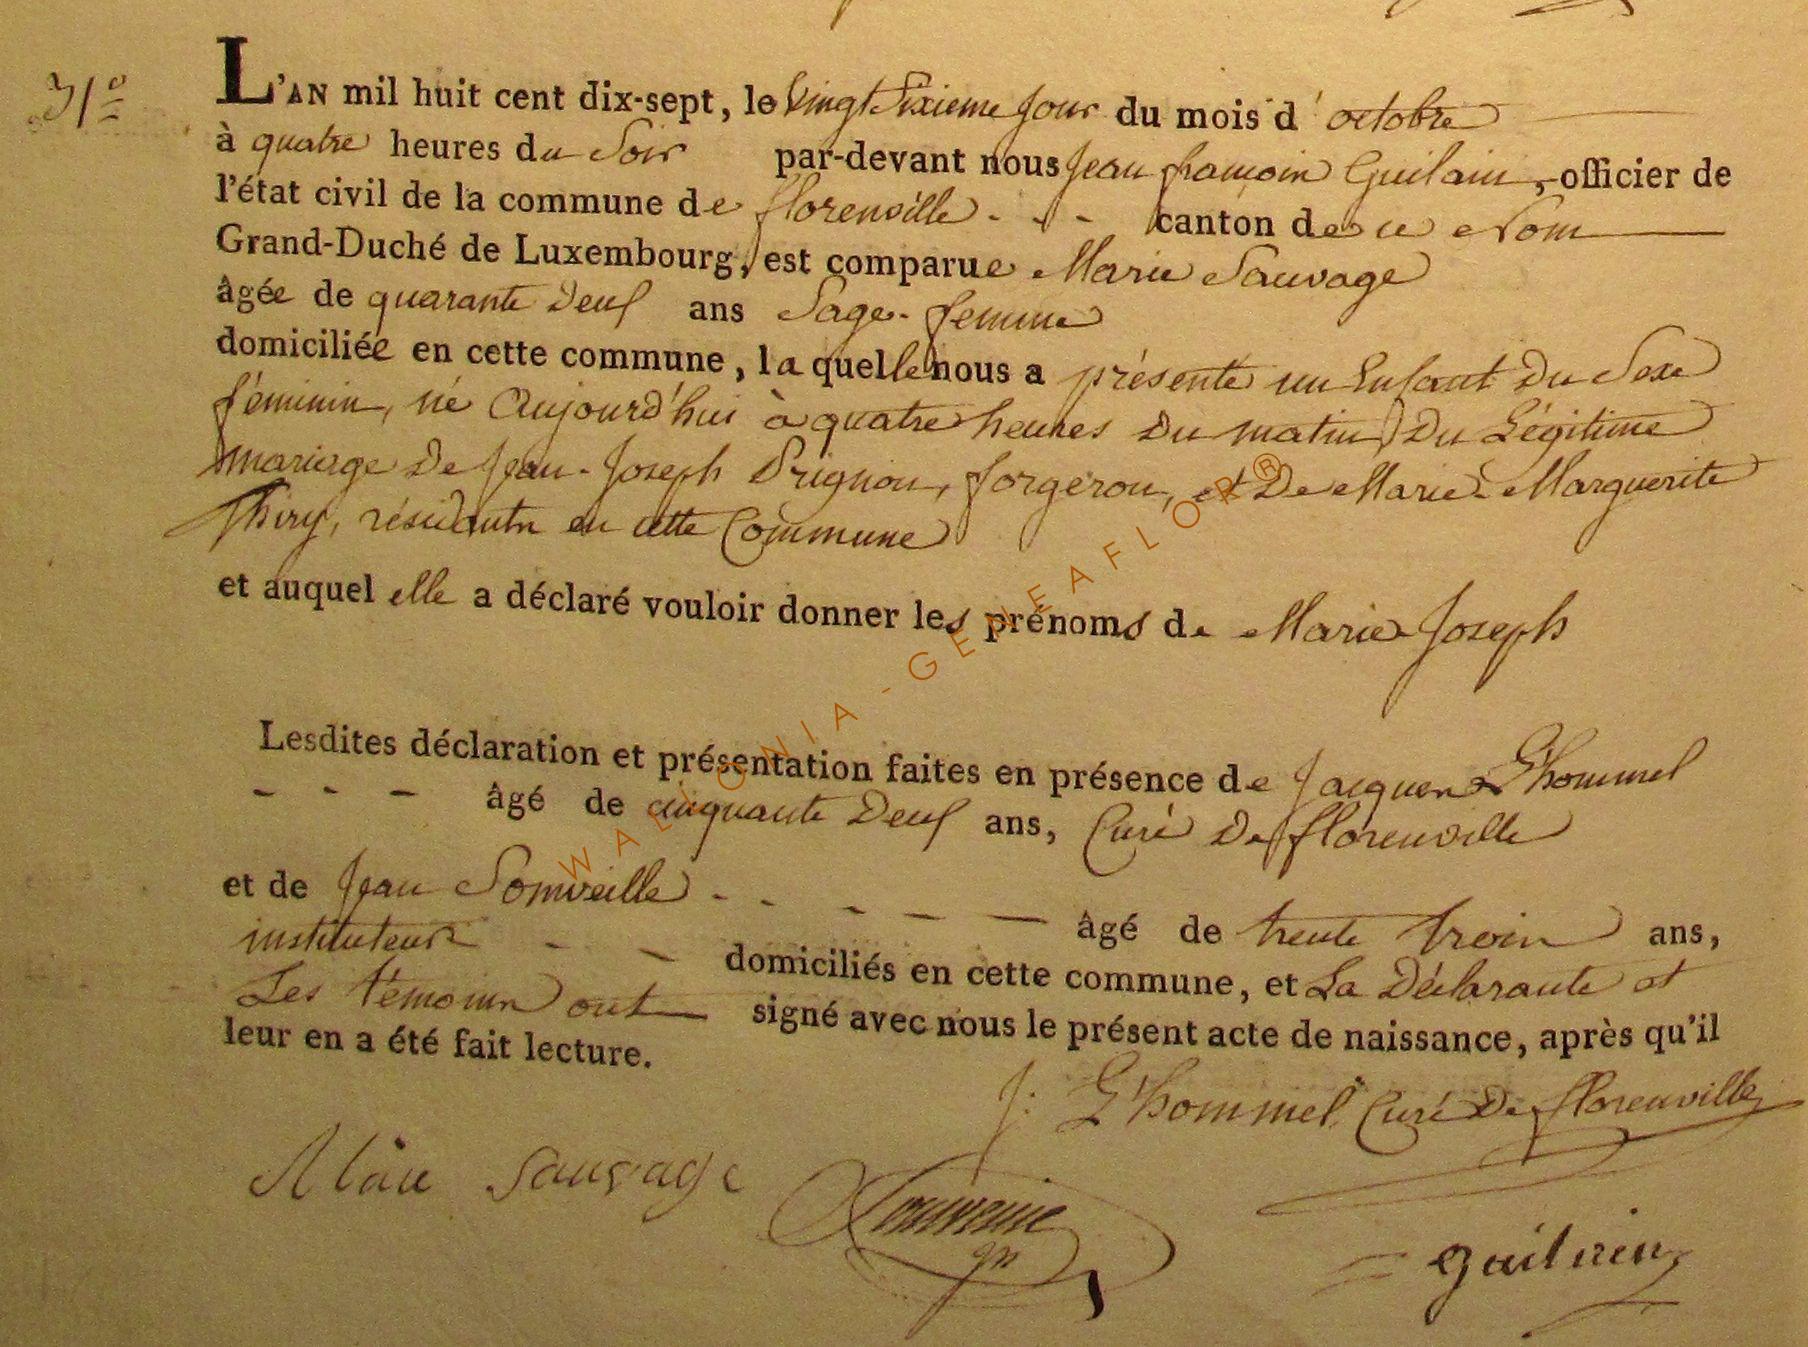 31°
L'AN mil huit cent dix-sept, le vingt Sixieme jour du mois d'octobre
à quatre heures du Soir par-devant nous Jean françois Guilain, officier de
l'état civil de la commune de florenville - - - canton de ce Nom
Grand-Duché de Luxembourg, est comparue Marie Sauvage
âgée de quarante Deux ans Sage-femme
domiciliée en cette commune, la quelle nous a présenté un Enfant Du Sexe
féminin, né Aujourd'hui à quatre heures Du matin, Du Légitime
mariage De Jean-Joseph Prignon, forgeron, et De Marie-Marguerite
Thiry, résidants en cette Commune
et auquel elle a déclaré vouloir donner les prénoms de Marie Joseph
Lesdites déclaration et présentation faites en présence de Jacques L'hommel
- - - âgé de cinquante Deux ans, Curé De florenville
et de Jean Somveille - - - - - âgé de trente trois ans,
instituteur - - - domiciliés en cette commune, et La Déclarante et
Les témoins ont signé avec nous le présent acte de naissance, après qu'il
leur en a été fait lecture.
J: L'hommel Curé De florenville
Marie Sauvage
guilain
WALLONIA-GENEAFLOR®